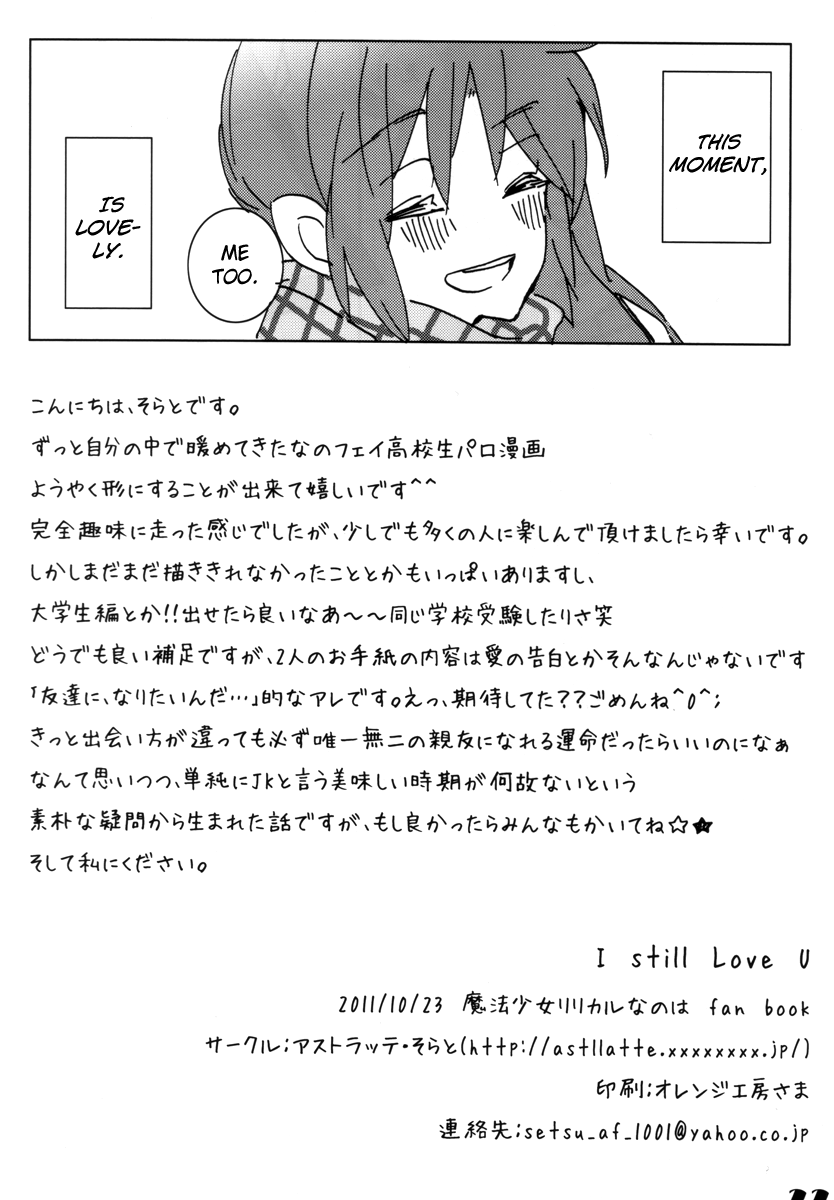 THIS
MOMENT,
ME
TOO.
IS
LOVE-
LY.
こんにちは、そらとです。
ずっと自分の中で暖めてきたなのフェイ高校生パロ漫画
ようやく形にすることが出来て嬉しいです^^
完全趣味に走った感じでしたが、少しでも多くの人に楽しんで頂けましたら幸いです。
しかしまだまだ描ききれなかったこととかもいっぱいありますし、
大学生編とか!!出せたら良いなあ〜〜同じ学校受験したりさ笑
どうでも良い補足ですが、2人のお手紙の内容は愛の告白とかそんなんじゃないです
「友達に、なりたいんだ…」的なアレです。えっ、期待してた??ごめんね^0^;
きっと出会い方が違っても必ず唯一無二の親友になれる運命だったらいいのになぁ
なんて思いつつ、単純にJKと言う美味しい時期が何故ないという
素朴な疑問から生まれた話ですが、もし良かったらみんなもかいてね☆★
そして私にください。
I still Love U
2011/10/23 魔法少女リリカルなのは fan book
サークル;アストラッテ・そらと(http://astllatte.xxxxxxxx.jp/)
印刷;オレンジ工房さま
連絡先;setsu_af_1001@yahoo.co.jp